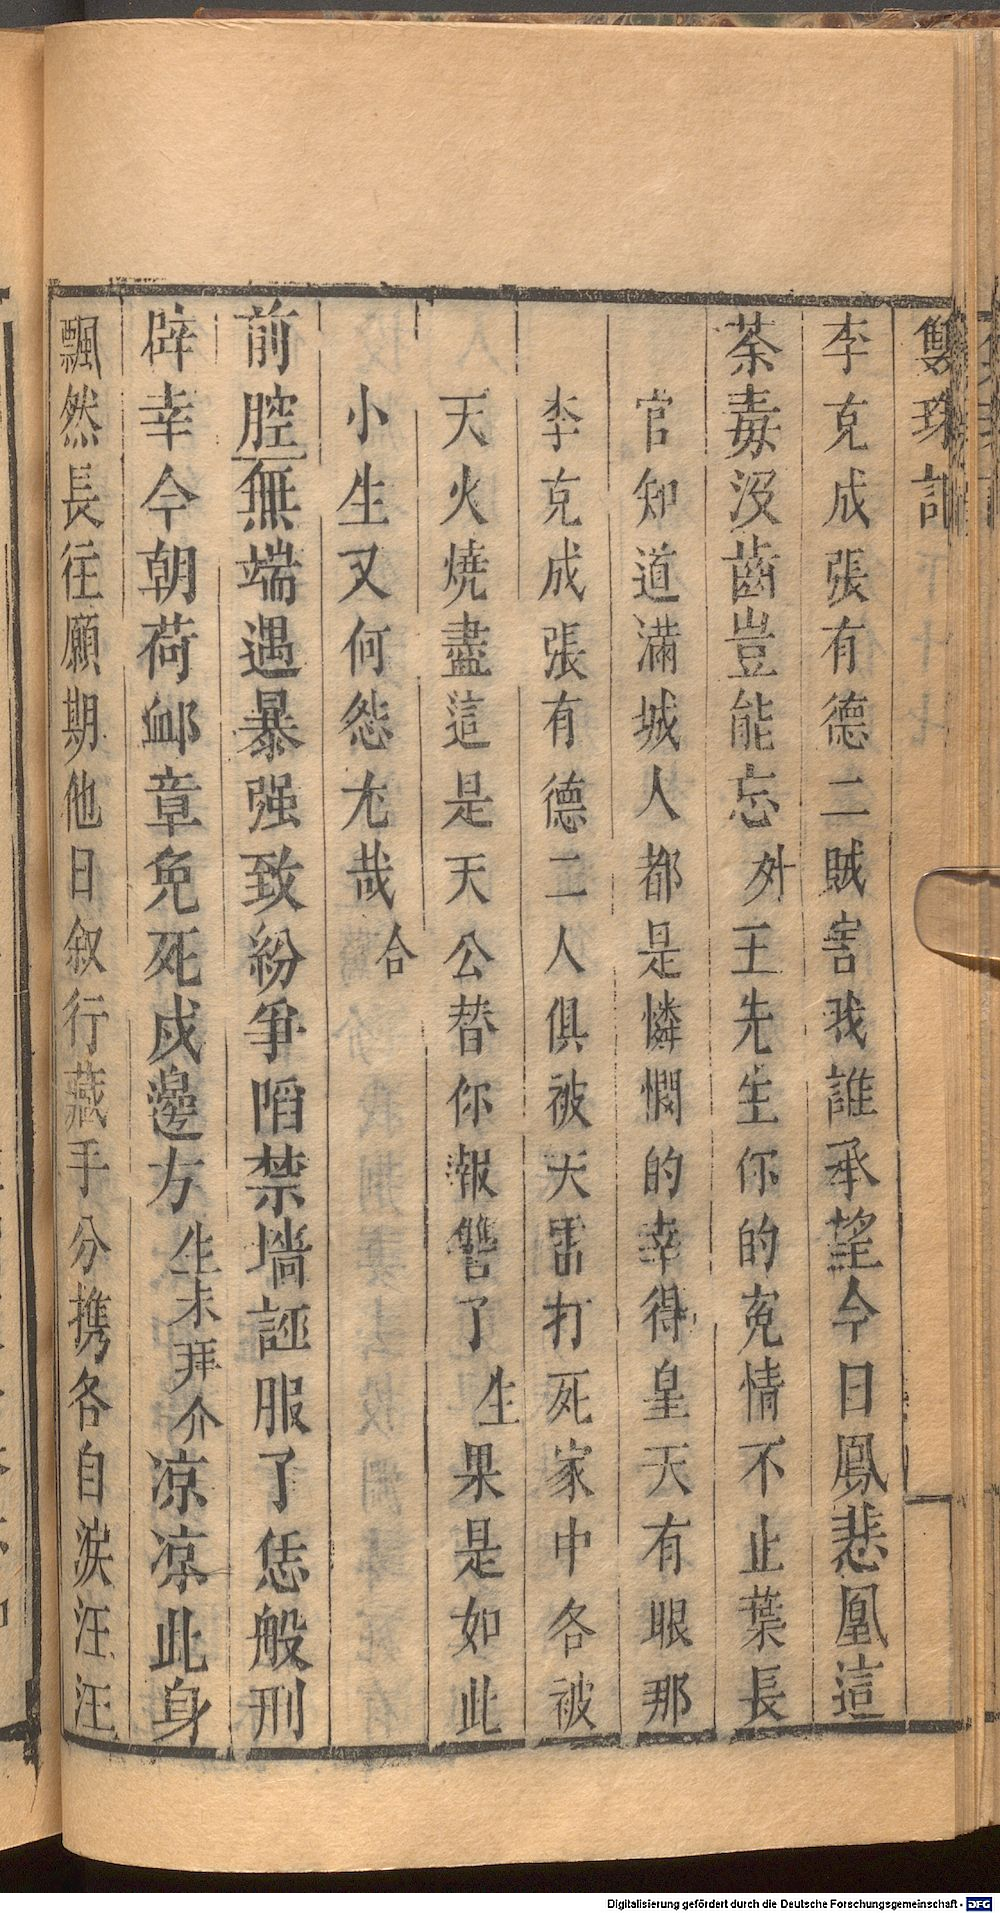 雙珠記
李克成張有德二賊害我誰承望今日鳳悲凰這
荼毒沒齒豈能忘外王先生你的寃情不止葉長
官知道滿城人都是憐憫的幸得皇天有眼那
李克成張有德二人俱被天雷打死家中各被
天火燒盡這是天公替你報讐了生果是如此
小生又何怨尤哉合
前腔無端遇暴强致紛爭陷禁墻誣服了恁般刑
辟幸今朝荷䘏章免死戍邊方生末拜介凉凉此身
飄然長往願期他日叙行藏手分携各自淚汪汪
Digitalisierung gefördert durch die Deutsche Forschungsgemeinschaft - DFG